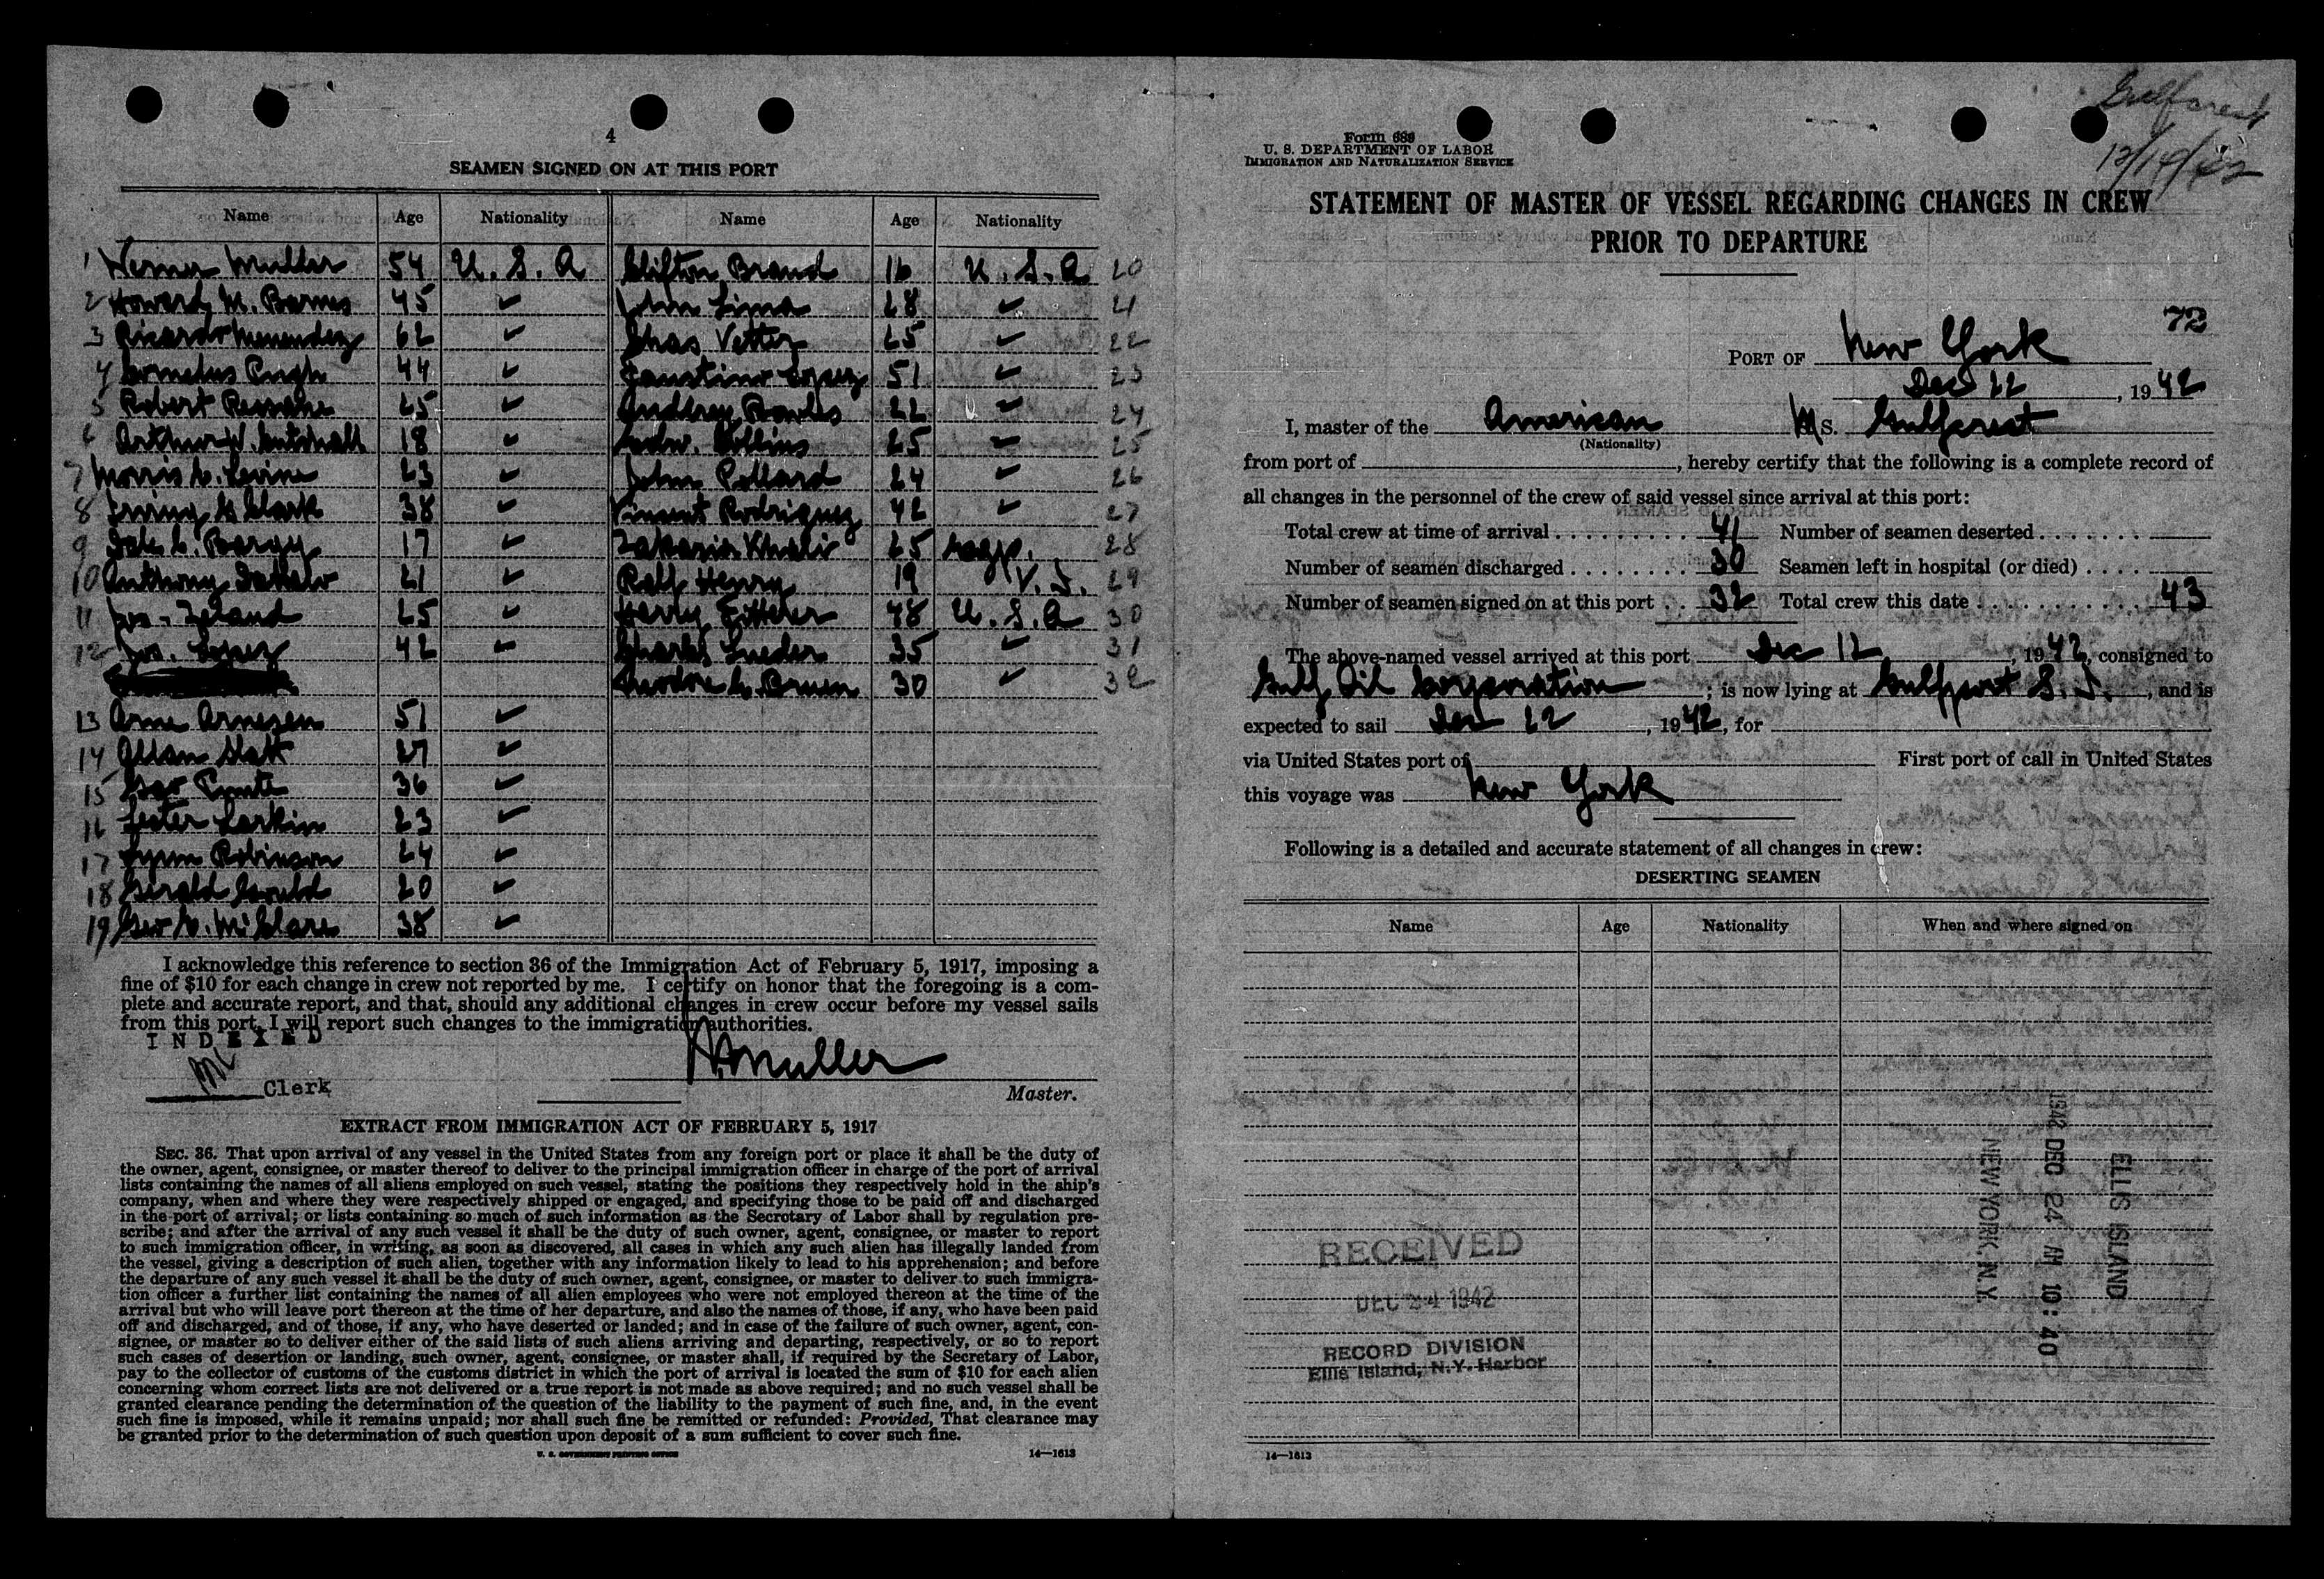 4
SEAMEN SIGNED ON AT THIS PORT
Name Age Nationality Name Age Nationality
1 Werner Muller 54 U. S. A Clifton Brand 16 U. S. A 20
2 Howard M. Barnes 45 ✓ John Lima 28 ✓ 21
3 Ricardo Menendez 62 ✓ Chas Vetter 25 ✓ 22
4 Cornelius Pugh 44 ✓ Faustino Lopez 51 ✓ 23
5 Robert 25 ✓ 22 ✓ 24
6 Arthur W. 18 ✓ Collins 25 ✓ 25
7 Morris C. Levine 23 ✓ John Pollard 24 ✓ 26
8 Irving G Clark 38 ✓ Vincent Rodriguez 42 ✓ 27
9 Dale C. 17 ✓ Zakaria Khalir 25 28
10 Anthony 21 ✓ Henry 19 V. I. 29
11 Jos. Zeland 25 ✓ Harry 48 U. S. A 30
12 Jos. Lopez 42 ✓ Charles Lueder 35 ✓ 31
Theodore C. Bruen 30 ✓ 32
13 Arne Arnesen 51 ✓
14 Allan 27 ✓
15 Geo 36 ✓
16 Lester Larkin 23 ✓
17 Lynn Robinson 24 ✓
18 Gerald Gould 20 ✓
19 Geo C. McClare 38 ✓
I acknowledge this reference to section 36 of the Immigration Act of February 5, 1917, imposing a
fine of $10 for each change in crew not reported by me. I certify on honor that the foregoing is a com-
plete and accurate report, and that, should any additional changes in crew occur before my vessel sails
from this port, I will report such changes to the immigration authorities.
INDEXED
Clerk
W. Muller
Master.
EXTRACT FROM IMMIGRATION ACT OF FEBRUARY 5, 1917
SEC. 36. That upon arrival of any vessel in the United States from any foreign port or place it shall be the duty of
the owner, agent, consignee, or master thereof to deliver to the principal immigration officer in charge of the port of arrival
lists containing the names of all aliens employed on such vessel, stating the positions they respectively hold in the ship's
company, when and where they were respectively shipped or engaged, and specifying those to be paid off and discharged
in the port of arrival; or lists containing so much of such information as the Secretary of Labor shall by regulation pre-
scribe; and after the arrival of any such vessel it shall be the duty of such owner, agent, consignee, or master to report
to such immigration officer, in writing, as soon as discovered, all cases in which any such alien has illegally landed from
the vessel, giving a description of such alien, together with any information likely to lead to his apprehension; and before
the departure of any such vessel it shall be the duty of such owner, agent, consignee, or master to deliver to such immigra-
tion officer a further list containing the names of all alien employees who were not employed thereon at the time of the
arrival but who will leave port thereon at the time of her departure, and also the names of those, if any, who have been paid
off and discharged, and of those, if any, who have deserted or landed; and in case of the failure of such owner, agent, con-
signee, or master so to deliver either of the said lists of such aliens arriving and departing, respectively, or so to report
such cases of desertion or landing, such owner, agent, consignee, or master shall, if required by the Secretary of Labor,
pay to the collector of customs of the customs district in which the port of arrival is located the sum of $10 for each alien
concerning whom correct lists are not delivered or a true report is not made as above required; and no such vessel shall be
granted clearance pending the determination of the question of the liability to the payment of such fine, and, in the event
such fine is imposed, while it remains unpaid; nor shall such fine be remitted or refunded: Provided, That clearance may
be granted prior to the determination of such question upon deposit of a sum sufficient to cover such fine.
U. S. GOVERNMENT PRINTING OFFICE 14—1613
Gulfcrest
Form 689
U. S. DEPARTMENT OF LABOR
IMMIGRATION AND NATURALIZATION SERVICE
STATEMENT OF MASTER OF VESSEL REGARDING CHANGES IN CREW
PRIOR TO DEPARTURE
72
PORT OF New York
Dec 22, 1942
I, master of the American MS. Gulfcrest
(Nationality)
from port of , hereby certify that the following is a complete record of
all changes in the personnel of the crew of said vessel since arrival at this port:
Total crew at time of arrival 41 Number of seamen deserted
Number of seamen discharged 30 Seamen left in hospital (or died)
Number of seamen signed on at this port 32 Total crew this date 43
The above-named vessel arrived at this port Dec 12, 1942, consigned to
Gulf Oil Corporation; is now lying at Gulfport S. I., and is
expected to sail Dec 22, 1942, for
via United States port of First port of call in United States
this voyage was New York
Following is a detailed and accurate statement of all changes in crew:
DESERTING SEAMEN
Name Age Nationality When and where signed on
RECEIVED
DEC 24 1942
RECORD DIVISION
Ellis Island, N.Y. Harbor
1942 DEC 24 AM 10:40
ELLIS ISLAND
NEW YORK, N.Y.
14—1613